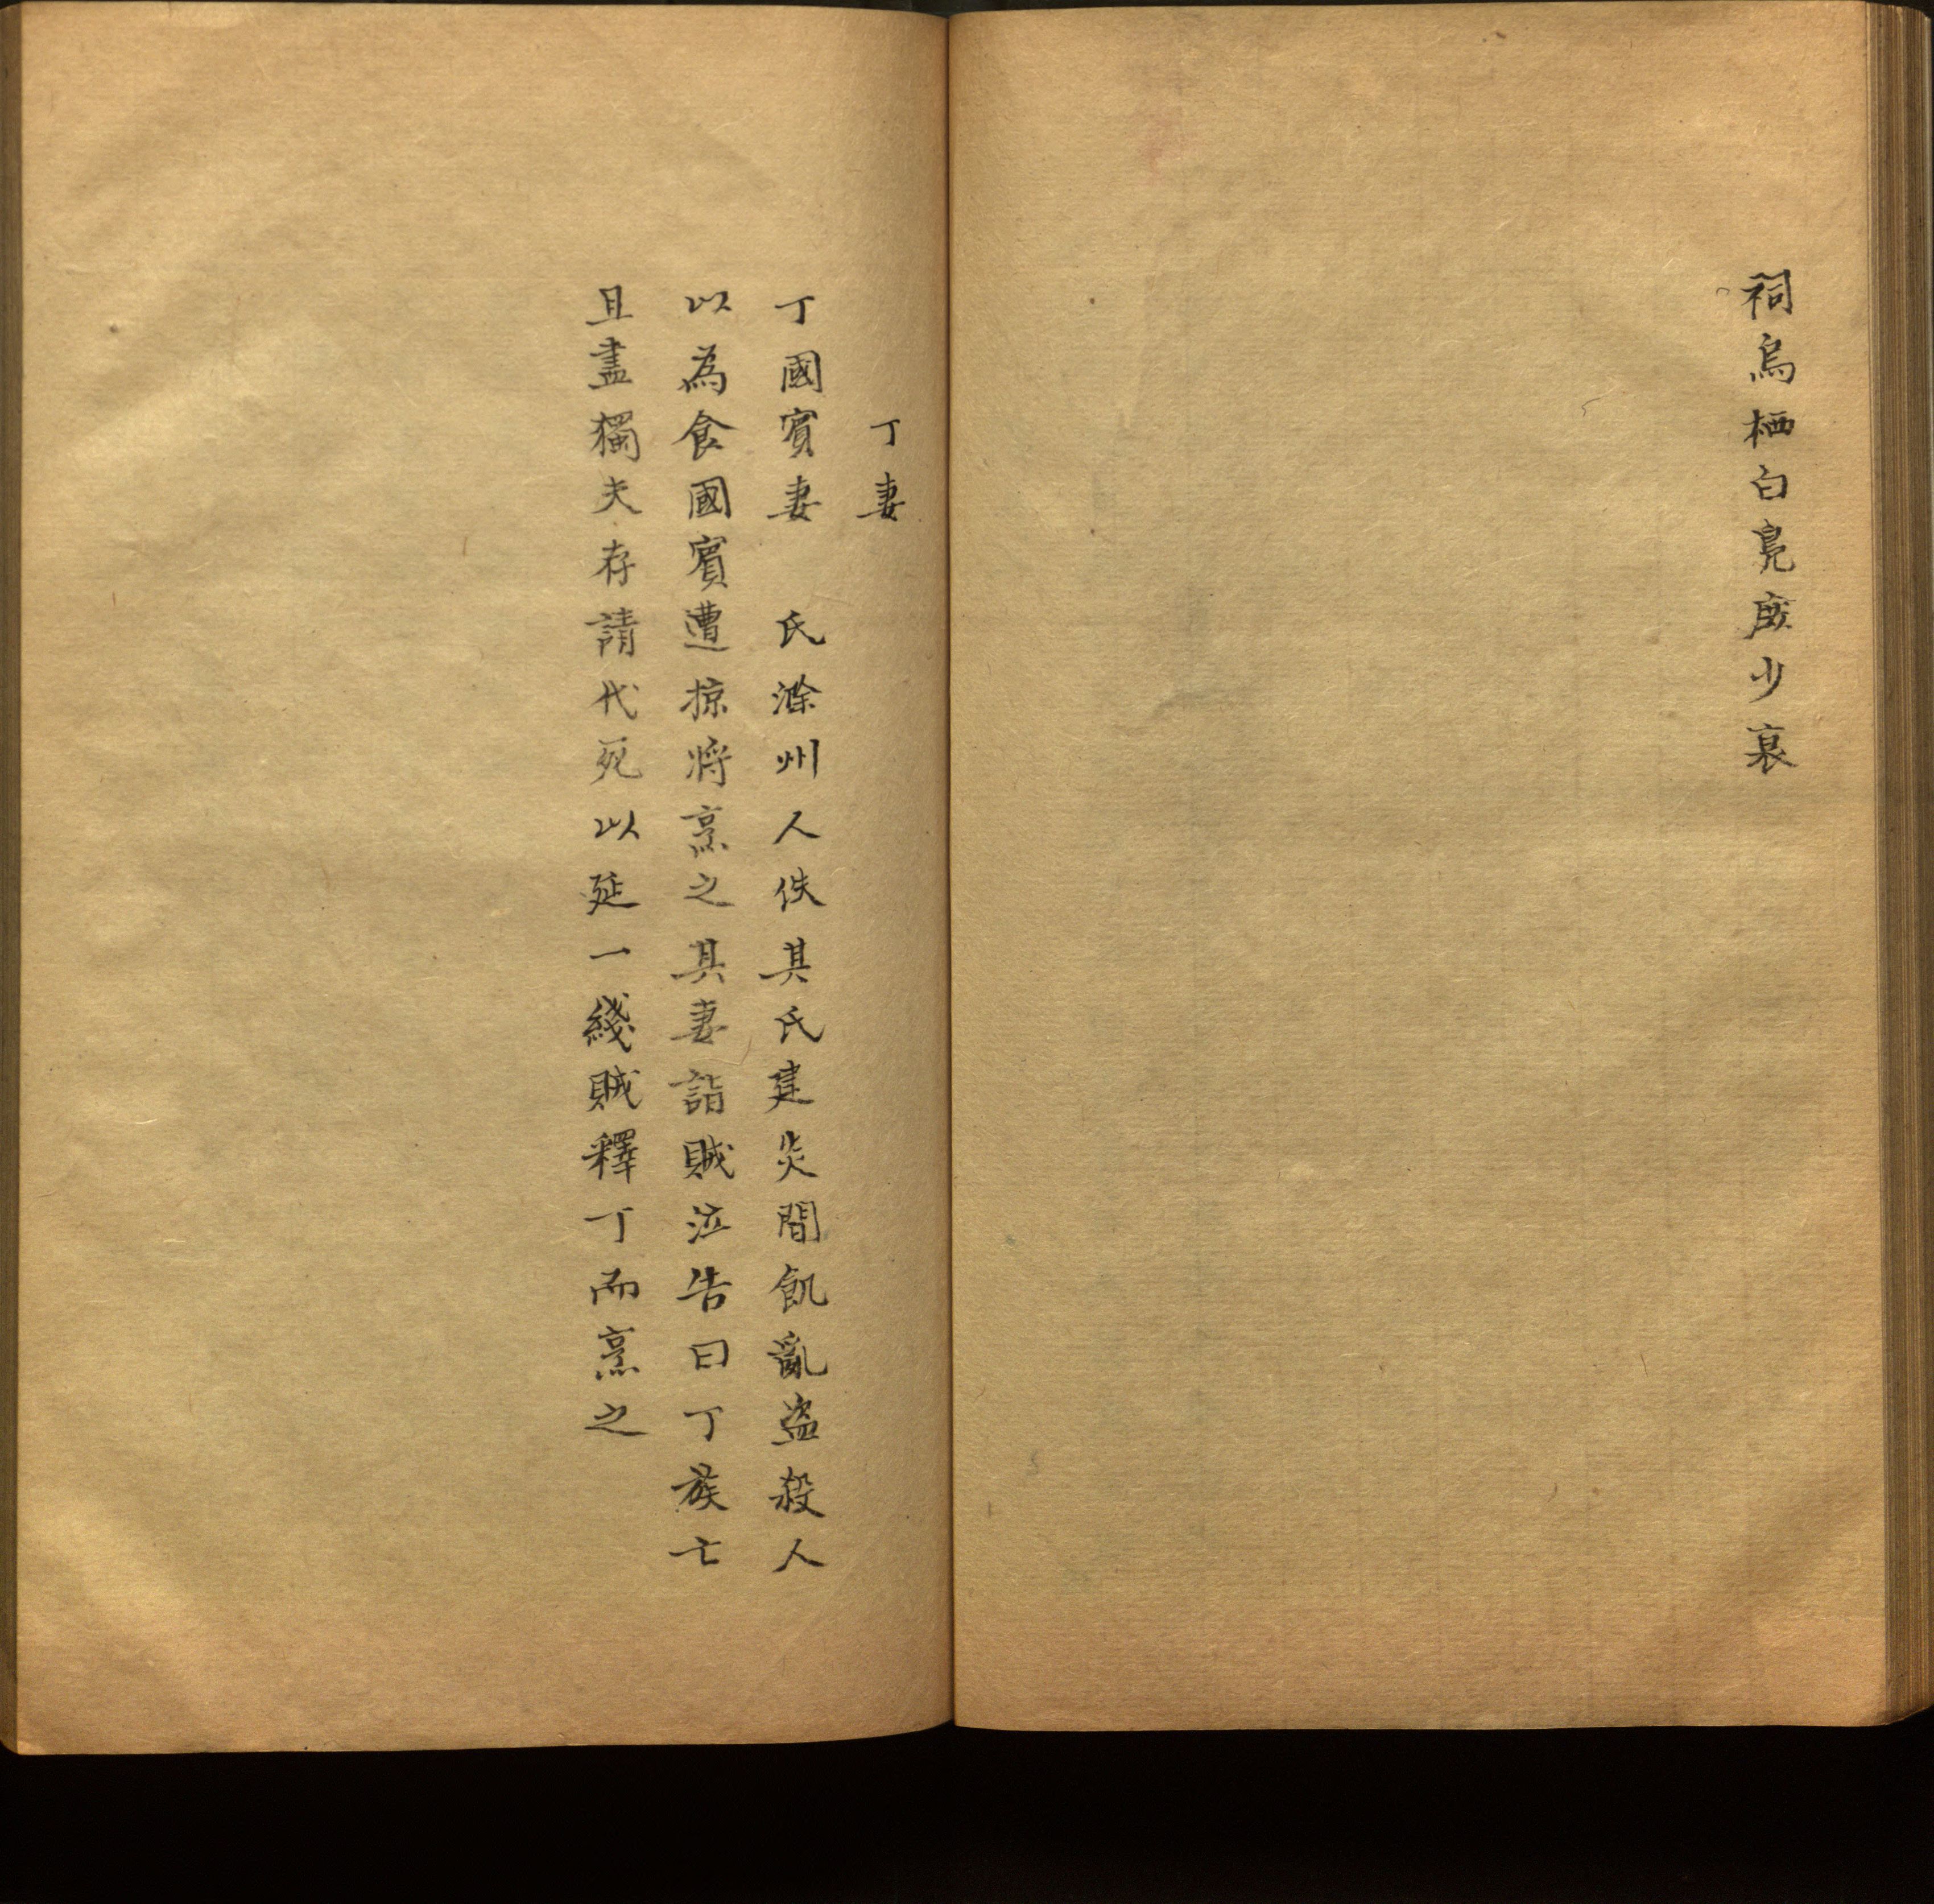 祠烏栖白晃廢少哀
丁妻
丁國賓妻　氏滁州人佚其氏建炎間飢亂盜殺人
以為食國賓遭掠將烹之其妻詣賊泣告曰丁族亡
且盡獨夫存請代死以延一綫賊釋丁而烹之